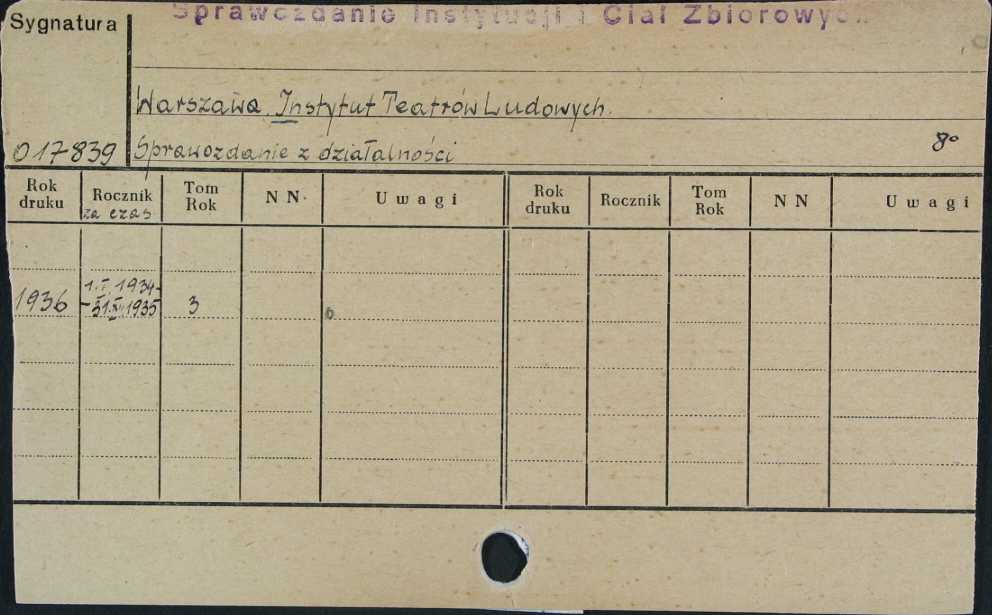 Sprawozdanie Instytucji i Ciał Zbiorowych
Sygnatura
Warszawa. Instytut Teatrów Ludowych.
017839 Sprawozdanie z działalności 8°
Rok druku Rocznik za czas Tom Rok N N. Uwagi Rok druku Rocznik Tom Rok N N Uwagi
1936 1.I.1934- -31.XII.1935 3